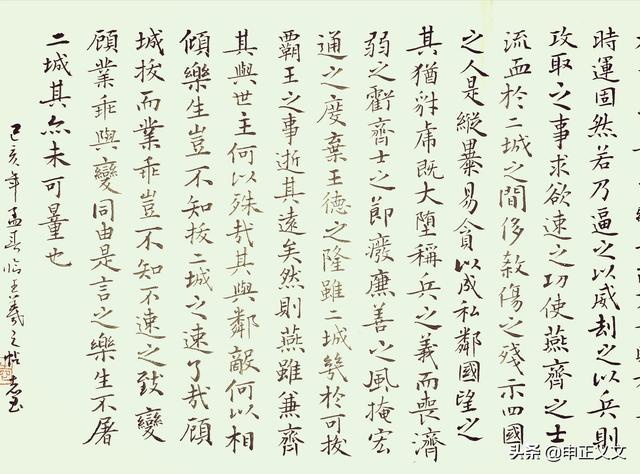 時運固然若乃逼之以威劫之以兵則
攻取之事求欲速之功使燕齊之士
流血於二城之間侈殺傷之殘示四國
之人是縱暴易貪以成私鄰國望之
其猶豺虎既大墮稱兵之義而喪濟
弱之虧齊士之節廢廉善之風掩宏
通之度棄王德之隆雖二城幾於可拔
覇王之事逝其遠矣然則燕雖兼齊
其與世主何以殊哉其與鄰敵何以相
傾樂生豈不知拔二城之速了哉顧
城拔而業乖豈不知不速之致變
顧業乖與變同由是言之樂生不屠
二城其亦未可量也
己亥年孟春临王羲之帖
头条 @申正义文